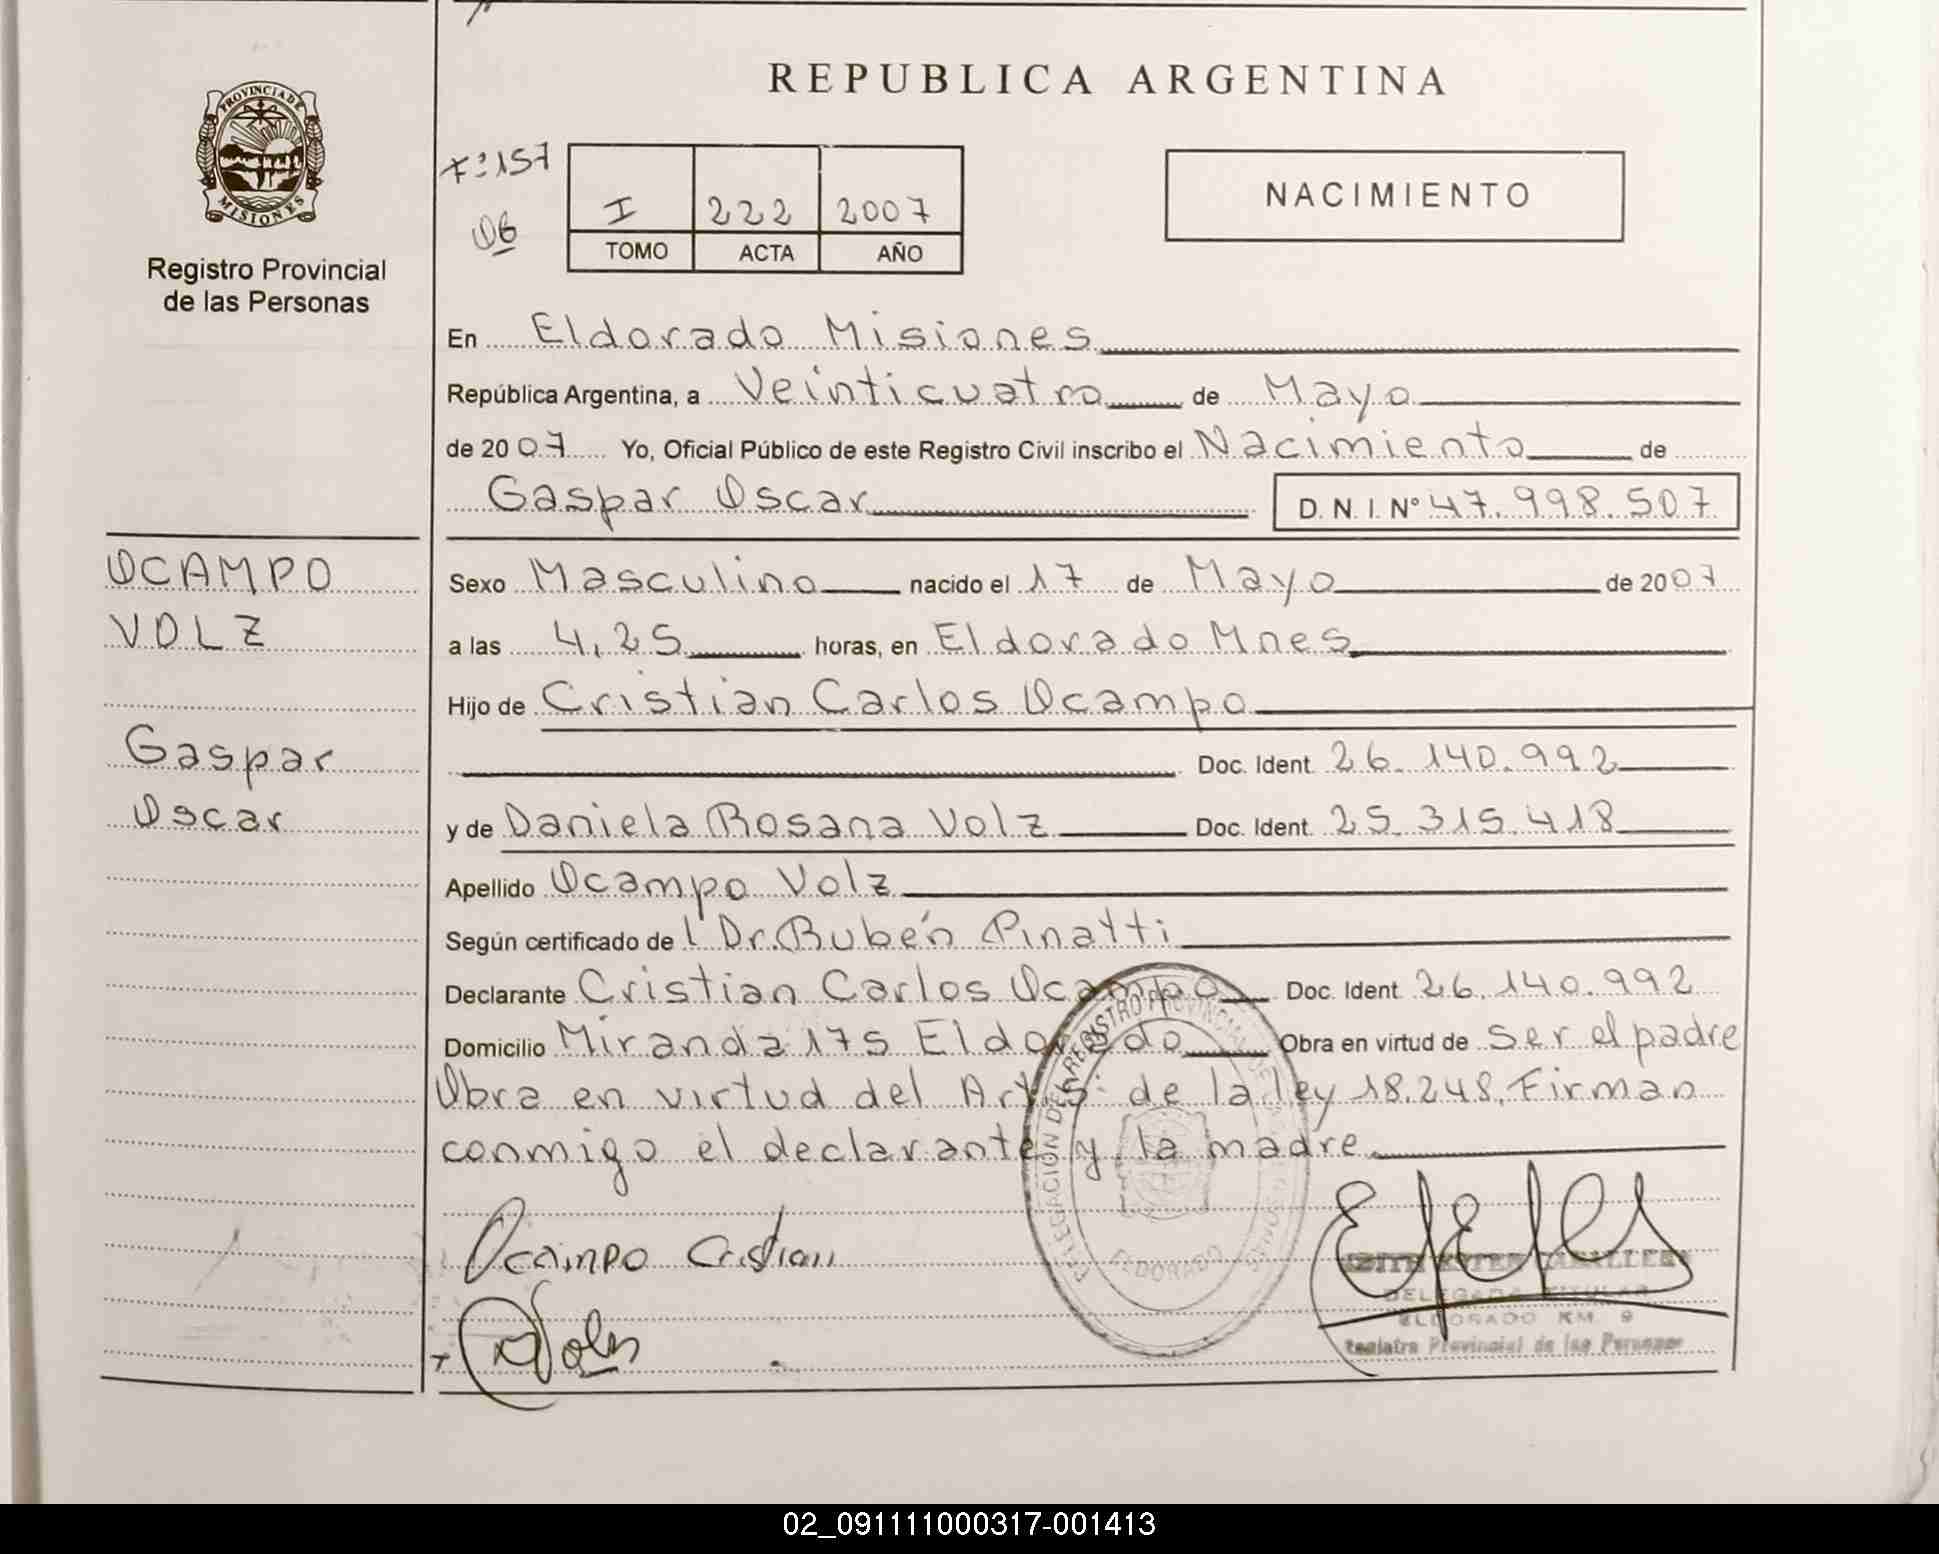 REPUBLICA ARGENTINA
PROVINCIA DE
MISIONES
Registro Provincial
de las Personas
Fº 157
06
I 222 2007
TOMO ACTA AÑO
NACIMIENTO
En Eldorado Misiones
República Argentina, a Veinticuatro de Mayo
de 2007 Yo, Oficial Público de este Registro Civil inscribo el Nacimiento de
Gaspar Oscar D. N. I. Nº 47.998.507
OCAMPO
VOLZ
Gaspar
Oscar
Sexo Masculino nacido el 17 de Mayo de 2007
a las 4,25 horas, en Eldorado Mnes
Hijo de Cristian Carlos Ocampo
Doc. Ident. 26.140.992
y de Daniela Rosana Volz Doc. Ident. 25.315.418
Apellido Ocampo Volz
Según certificado de l Dr. Rubén Pinatti
Declarante Cristian Carlos Ocampo Doc. Ident. 26.140.992
Domicilio Miranda 175 Eldorado Obra en virtud de ser el padre
Obra en virtud del Art. 5: de la ley 18.248, Firman
conmigo el declarante y la madre
Ocampo Cristian
DELEGACION DEL REGISTRO PROVINCIAL DE
ELDORADO
DELEGADA TITULAR
ELDORADO KM. 9
Registro Provincial de las Personas
02_091111000317-001413